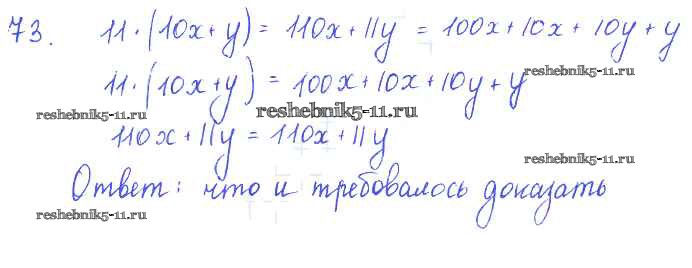 73. 11·(10x+y) = 110x+11y = 100x+10x+10y+y
11·(10x+y) = 100x+10x+10y+y
reshebnik5-11.ru
reshebnik5-11.ru
reshebnik5-11.ru
110x+11y = 110x+11y
reshebnik5-11.ru
Ответ: что и требовалось доказать
reshebnik5-11.ru